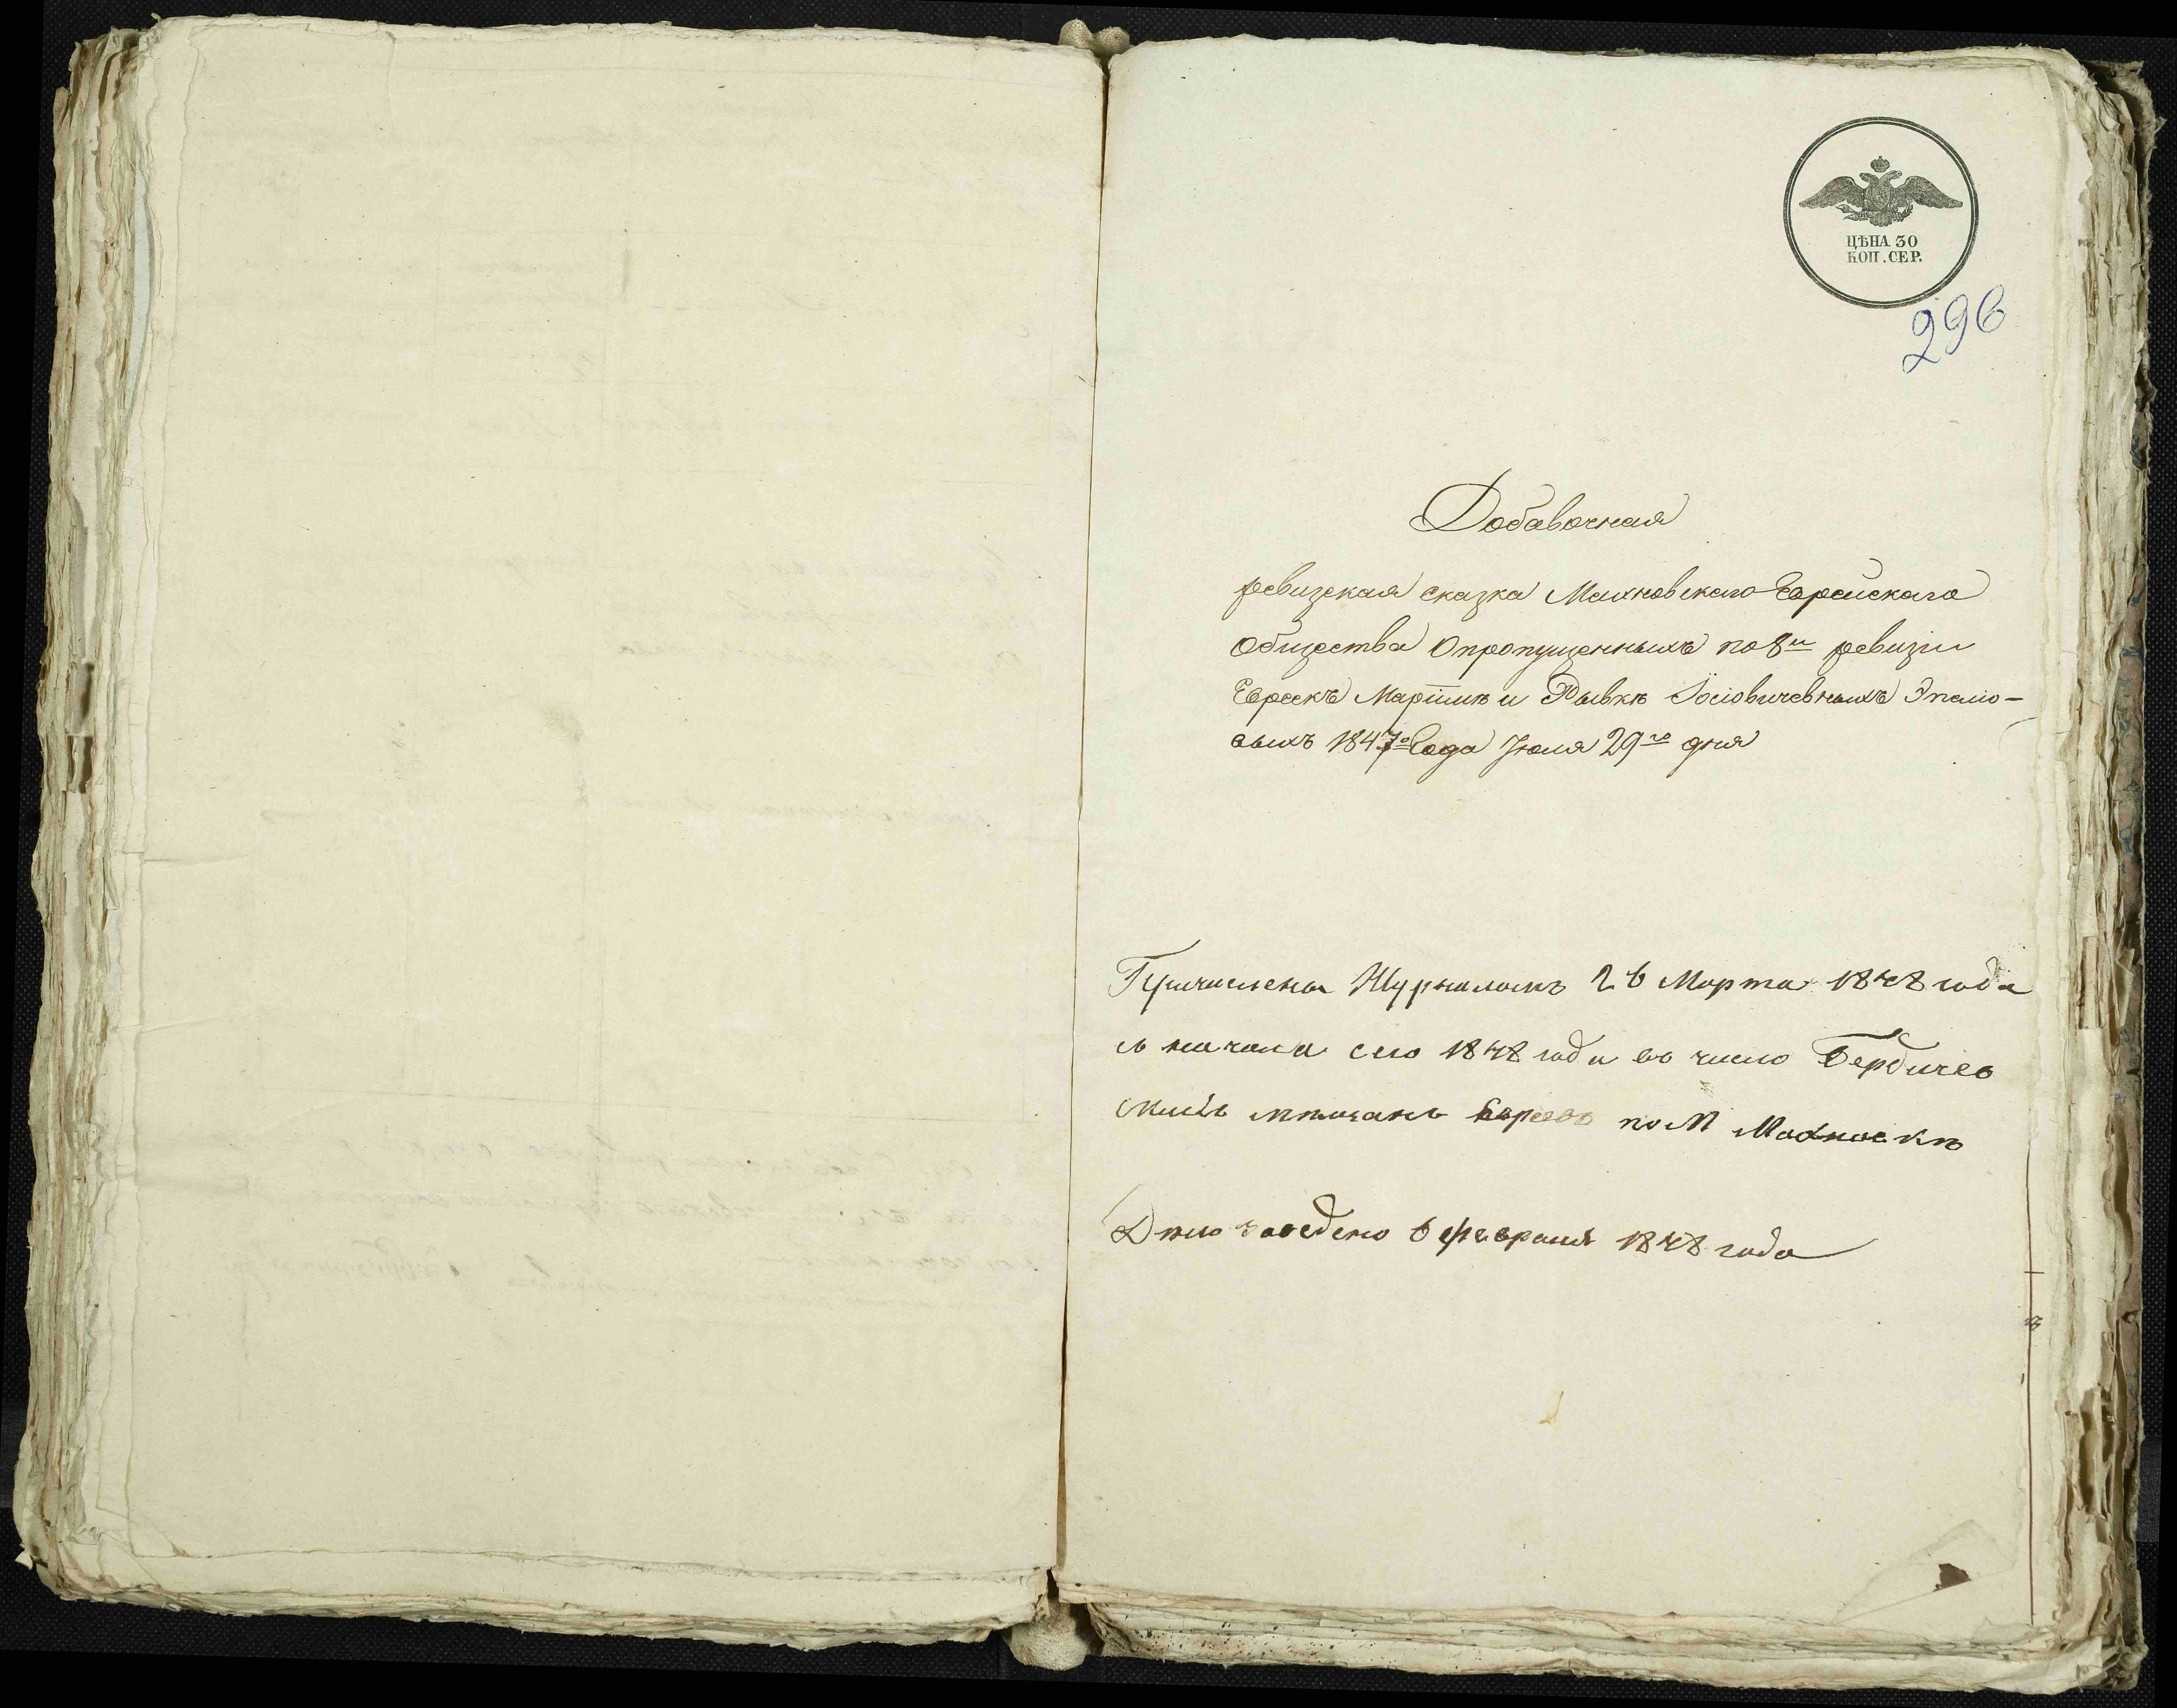 ЦѢНА 30
КОП. СЕР.
296
Добавочная
ревизская сказка Махновскаго Еврейскаго
Общества О пропущенныхъ по 8й ревизіи
Евреекъ и Рывкѣ Іосіовичевныхъ
выхъ 1847го Года Іюля 29го дня
Причислены Журналомъ 26 Марта 1848 года
съ начала сего 1848 года въ число Бердичев
скихъ мѣщанъ Евреевъ по М Махновкѣ
Дѣло заведено 6 февраля 1848 года